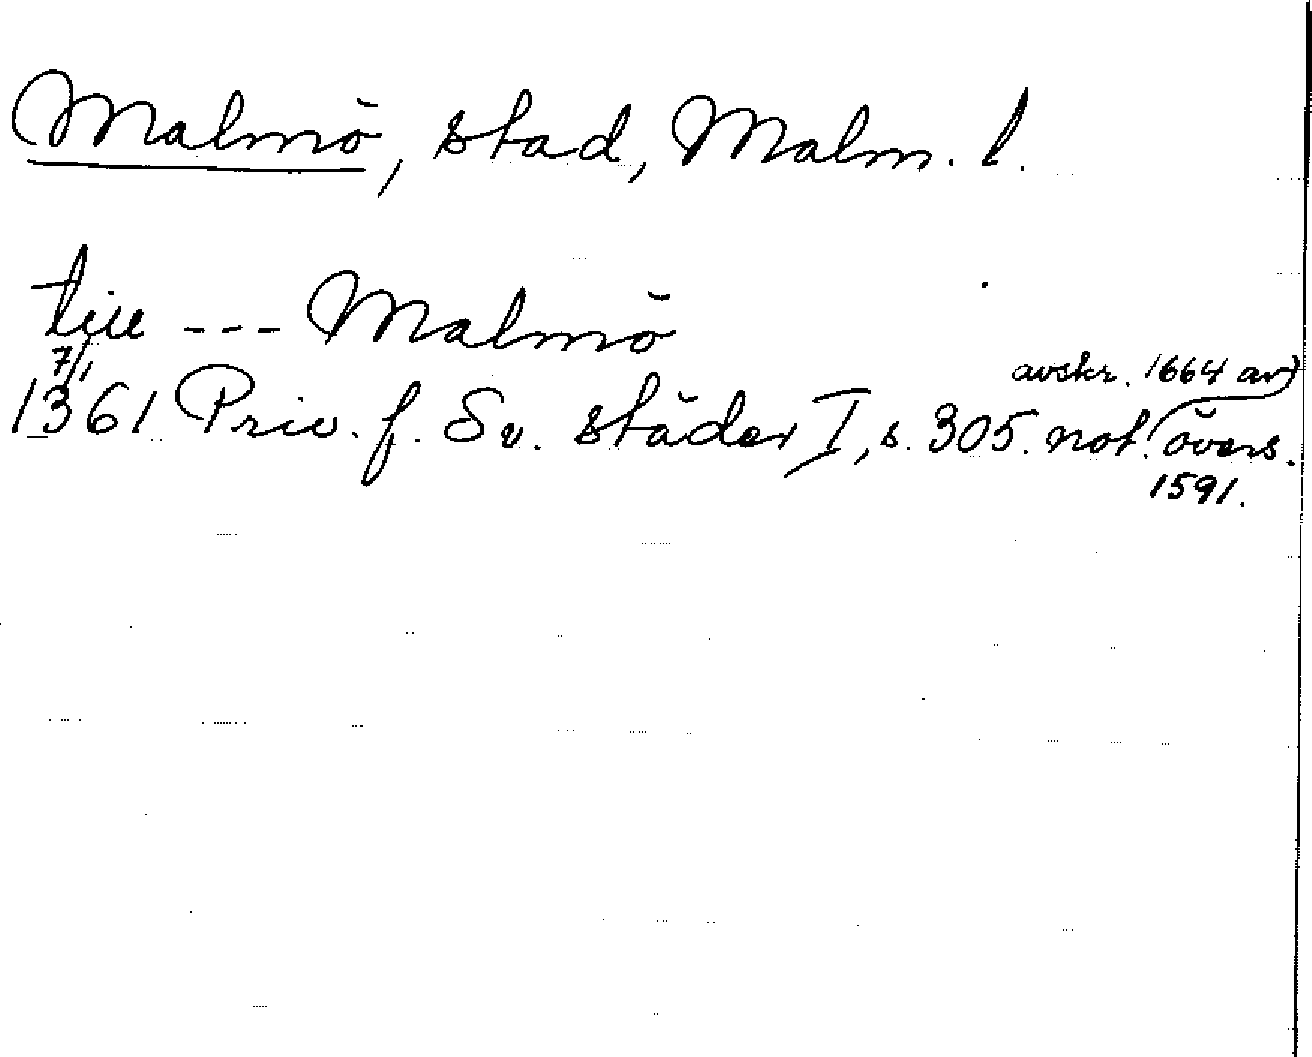 Malmö, stad, Malm. l.
till --- Malmö
7/1
1361 Priv. f. Sv. städer I, s. 305. not. avskr. 1664 av övers. 1591.